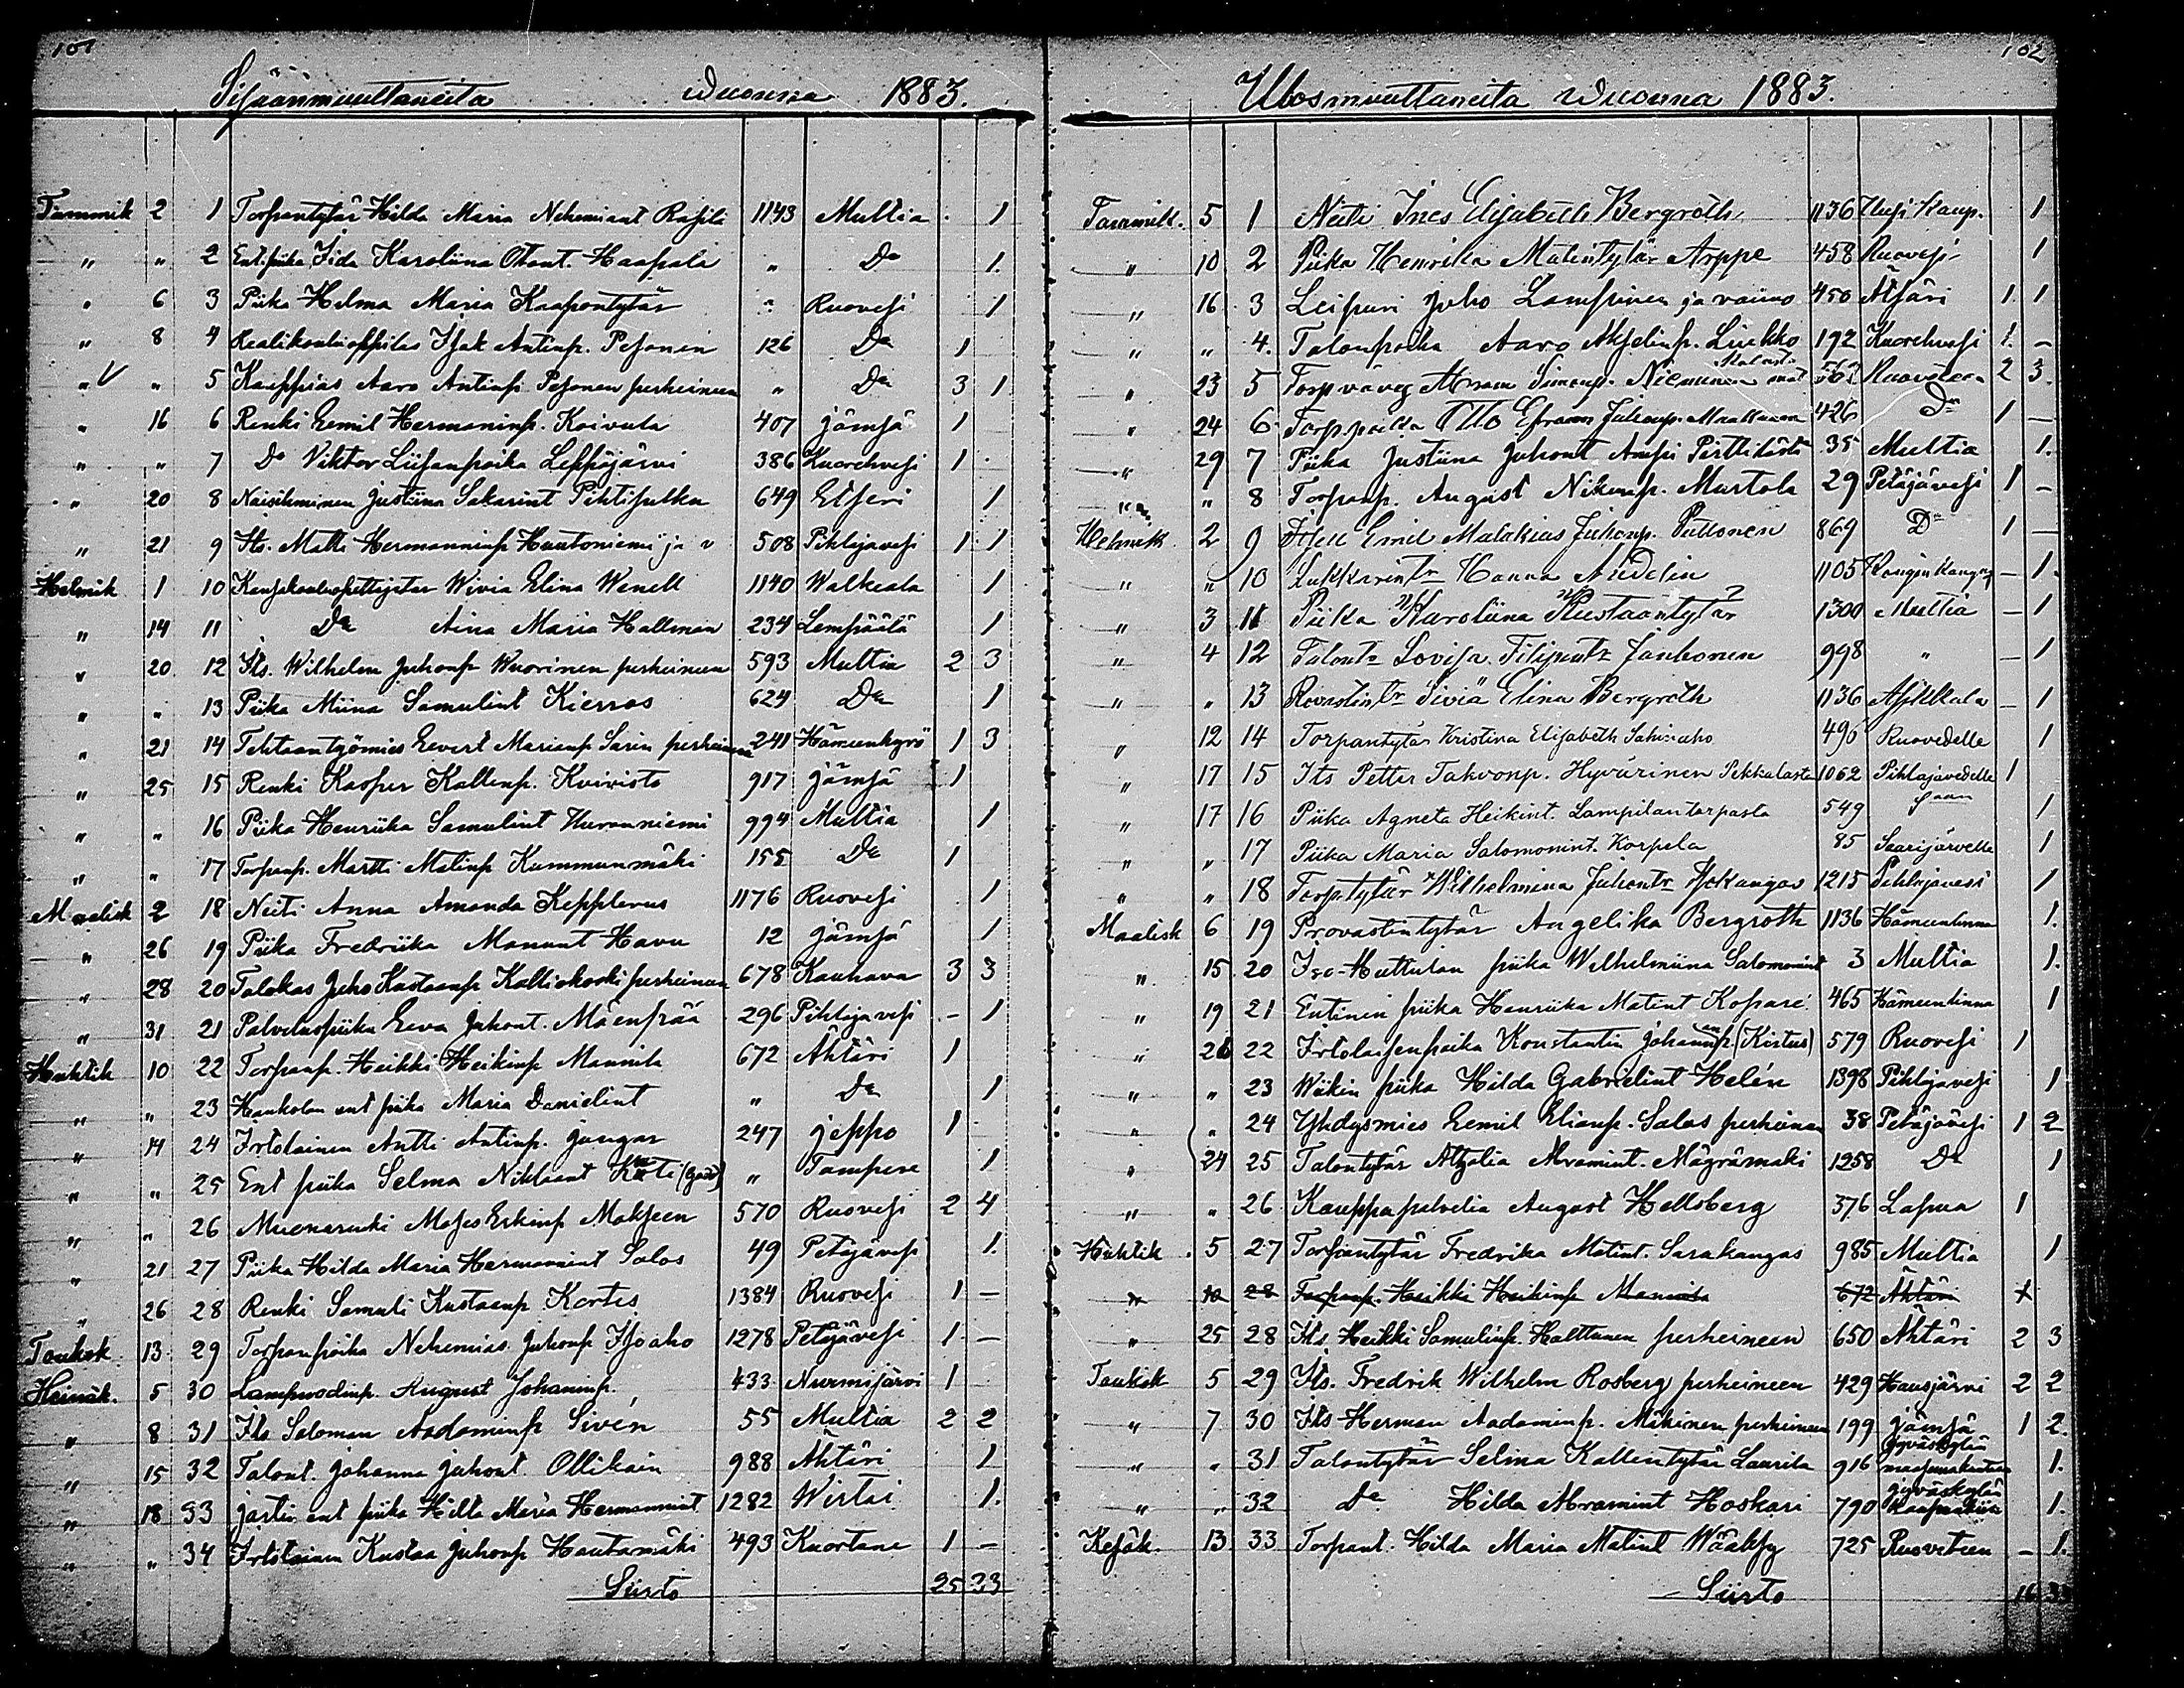 101
Sisäänmuuttaneita wuonna 1883.
Tammik 2 1 Torpantytär Hilda Maria Nehemiant Rasila 1143 Multia 1
" " 2 Ent. piika Iida Karoliina Otont. Haapala " Do 1.
" 6 3 Piika Helma Maria Kaapontytär " Ruovesi 1
" 8 4 Realikoulioppilas Isak Antinp. Pesonen 126 Do 1
" " 5 Kauppias Aaro Antinp. Pesonen perheineen " Do 3 1
" 16 6 Renki Eemil Hermaninp. Koivula 407 Jämsä 1
" " 7 Do Viktor Liisanpoika Leppäjärvi 386 Kuorehvesi 1
" 20 8 Naisihminen Justiina Sakarint Pihtisulku 649 Etseri 1
" 21 9 Its. Matti Hermanninp Huutoniemi ja v 508 Pihlajavesi 1 1
Helmik 1 10 Kansakoulunopettajatar Wivia Elina Wenell 1140 Walkeala 1
" 14 11 Do Aina Maria Hallman 234 Lempäälä 1
" 20 12 Its. Wilhelm Juhonp Wuorinen perheineen 593 Multia 2 3
" " 13 Piika Miina Samulint Kierros 624 Do 1
" 21 14 Tehtaantyömies Eevert Marianp Sarin perheineen 241 Hämeenkyrö 1 3
" 25 15 Renki Kasper Kallenp. Kvivisto 917 Jämsä 1
" " 16 Piika Henriika Samulint Huranniemi 994 Multia 1
" " 17 Torpanp. Martti Matinp Kummunmäki 155 Do 1
Maalisk 2 18 Neiti Anna Amanda Kepplerus 1176 Ruovesi 1
" 26 19 Piika Fredriika Manunt Havu 12 Jämsä 1
" 28 20 Talokas Juho Kustaanp Kalliokoski perheineen 678 Kauhava 3 3
" 31 21 Palveluspiika Eeva Juhont. Mäenpää 296 Pihlajavesi - 1
Huhtik 10 22 Torpanp. Heikki Heikinp Mannila 672 Ähtäri 1
" " 23 Hankolan ent piika Maria Danielint " Do 1
" 14 24 Irtolainen Antti Antinp. Jungar 247 Jeppo 1
" " 25 Ent piika Selma Niklaant " Tampere 1
" " 26 Muonarenki Moses Erkinp Makseen 570 Ruovesi 2 4
" 21 27 Piika Hilda Maria Hermannint Salos 49 Petäjävesi 1.
" 26 28 Renki Samuli Kustaanp Kortes 1384 Ruovesi 1 -
Toukok 13 29 Torpanpoika Nehemias Juhonp Isoaho 1278 Petäjävesi 1 -
Heinäk. 5 30 Lampuodinp. August Johaninp. 433 Nurmijärvi 1
" 8 31 Its Saloman Aadaminp Sivén 55 Multia 2 2
" 15 32 Talont. Johanna Juhont. Ollikain 988 Ähtäri 1
" 18 33 Jästin ent piika Hilta Maria Hermannint 1282 Wirtai 1.
" " 34 Irtolainen Kustaa Juhonp Hautamäki 493 Kuortane 1 -
Siirto 25 33
102
Ulosmuuttaneita wuonna 1883.
Tammik. 5 1 Neiti Ines Elisabeth Bergroth 1136 Uusi Kaup. 1
" 10 2 Piika Henrika Matintytär Arppe 458 Ruovesi 1
" 16 3 Leipuri Juho Lampinen ja vaimo 450 Ätsäri 1. 1
" " 4. Talonpoika Aaro Akselinp. Liukko 192 Kuorehvesi 1. -
" 23 5 Torp vävy Abram Simonp. Nieminen 562 Ruovteen 2 3.
" 24 6. Torp.poika Otto Efraim Juhonp. Maakunna 426 Do 1 -
" 29 7 Piika Justiina Juhont Ampi 35 Multia 1.
" " 8 Torpanp. August Nikunp. Murtola 29 Petäjävesi 1 -
Helmik 2 9 Itsell Emil Malakias Juhonp. Putkonen 869 Do 1 -
" " 10 Lukkarintr Hanna Audelin 1105 Kangas - 1.
" 3 11 Piika Karoliina Kustaantytär 1300 Multia - 1
" 4 12 Talontr Lovisa Filipintr Janhonen 998 " - 1
" " 13 Rovastintr Siviä Elina Bergroth 1136 Asikkala - 1
" 12 14 Torpantytär Kristina Elisabeth Sahinaho 496 Ruovedelle 1
" 17 15 Its Petter Takvonp. Hyvärinen Pekkalasta 1062 Pihlajavedelle 1
" 17 16 Piika Agneta Heikint. Lampilantorpasta 549 1
" " 17 Piika Maria Salomonint. Korpela 85 Saarijärvelle 1
" " 18 Torp.tytär Wilhelmina Juhontr Isokangas 1215 Pihlajavesi 1
Maalisk 6 19 Provastintytär Angelika Bergroth 1136 Hämeenlinna 1.
" 15 20 Iso-Huttulan piika Wilhelmiina Salomonint 3 Multia 1.
" 19 21 Entinen piika Henriika Matint Kopare 465 Hämeenlinna 1
" 21 22 Irtolaisenpoika Konstantin Johaninp. (Kirtus) 579 Ruovesi 1
" " 23 Wiikin piika Hilda Gabrielint Helén 1398 Pihlajavesi 1
" " 24 Yhdysmies Eemil Elianp. Salos perheineen 38 Petäjävesi 1 2
" 24 25 Talontytär Atzalia Abramint. Mägrämäki 1258 Do 1
" " 26 Kauppapalvelia August Hellsberg 376 Lapua 1
Huhtik 5 27 Torpantytär Fredrika Matint. Sarakangas 985 Multia 1
" 10 28 Torpanp. Heikki Heikinp Mannila 672 Ähtäri 1
" 25 28 Its. Heikki Samulinp. Halttunen perheineen 650 Ähtäri 2 3
Toukok 5 29 Its. Fredrik Wilhelm Rosberg perheineen 429 Hausjärvi 2 2
" 7 30 Its Herman Aadaminp. Mäkinen perheineen 199 Jämsä 1 2.
" " 31 Talontytär Selma Kallentytär Laurila 916 Jyväskylän maaseurakuntaan 1.
" " 32 Do Hilda Abramint Hoskari 790 Jyväskylän Kaupunkiin 1.
Kesäk. 13 33 Torpant. Hilda Maria Matint Wääksy 725 Ruoveteen - 1.
Siirto 16